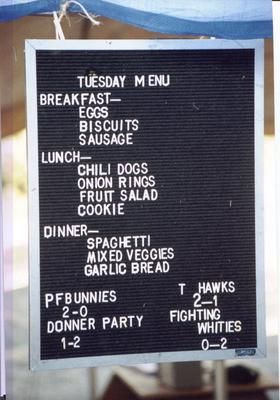 TUESDAY MENU
BREAKFAST—
EGGS
BISCUITS
SAUSAGE
LUNCH—
CHILI DOGS
ONION RINGS
FRUIT SALAD
COOKIE
DINNER—
SPAGHETTI
MIXED VEGGIES
GARLIC BREAD
PFBUNNIES
2-0
DONNER PARTY
1-2
T HAWKS
2-1
FIGHTING
WHITIES
0-2